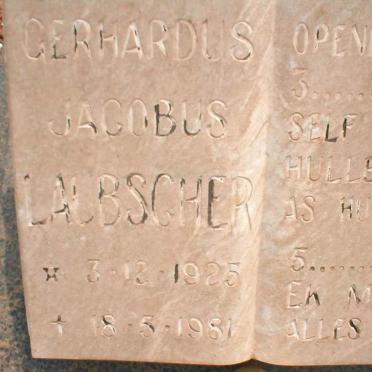 GERHARDUS
JACOBUS
LAUBSCHER
* 3·12·1925
+ 18·5·1981
OPEN
3.....
SELF
AS HU
5........
EK M
ALLES